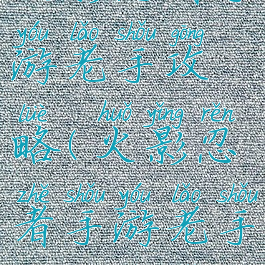 yóu lǎo shǒu gōng
游老手攻
lüè huǒ yǐng rěn
略(火影忍
zhě shǒu yóu lǎo shǒu
者手游老手